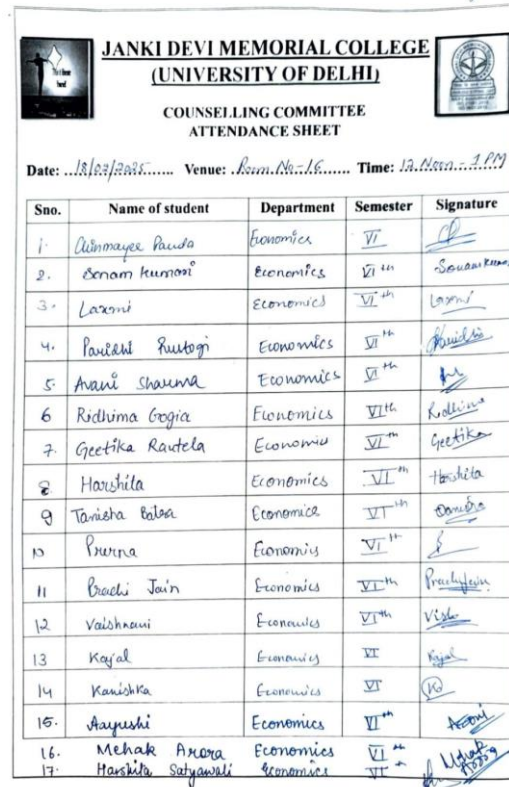 JANKI DEVI MEMORIAL COLLEGE
(UNIVERSITY OF DELHI)
COUNSELLING COMMITTEE
ATTENDANCE SHEET
Date: 18/02/2025 Venue: Room No-16 Time: 12 Noon - 1 PM
Sno. Name of student Department Semester Signature
1. Chinmayee Panda Economics VI
2. Sonam Kumari Economics VI th Sonam Kumari
3. Laxmi Economics VI th Laxmi
4. Paridhi Rustogi Economics VI th Paridhi
5. Avani Sharma Economics VI th
6 Ridhima Gogia Economics VI th Ridhima
7. Geetika Rautela Economics VI th Geetika
8 Harshita Economics VI th Harshita
9 Tanisha Economics VI th
10 Prerna Economics VI th
11 Prachi Jain Economics VI th Prachi Jain
12 Vaishnavi Economics VI th
13 Kajal Economics VI Kajal
14 Kanishka Economics VI
15. Aayushi Economics VI th
16. Mehak Arora Economics VI th Mehak Arora
17. Harshita Satyawali Economics VI th